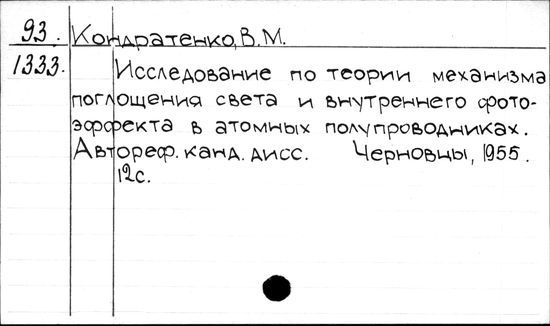 93. Кондратенко, В.М.
1333. Исследование по теории механизма
поглощения света и внутреннего фото-
эффекта в атомных полупроводниках.
Автореф. канд. дисс. Черновцы, 1955.
12с.